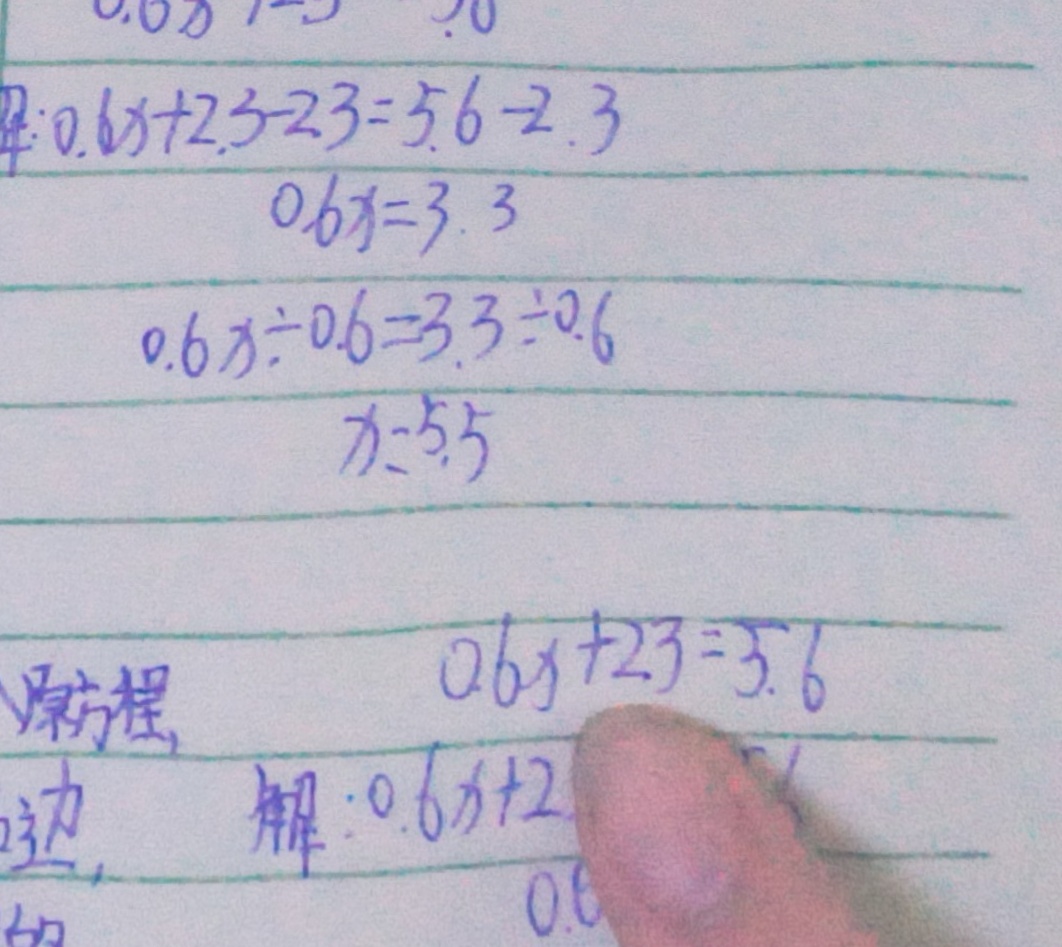 解:0.6x+2.3-2.3=5.6-2.3
0.6x=3.3
0.6x÷0.6=3.3÷0.6
x=5.5
原方程, 0.6x+2.3=5.6
边, 解:0.6x+2.
的 0.6